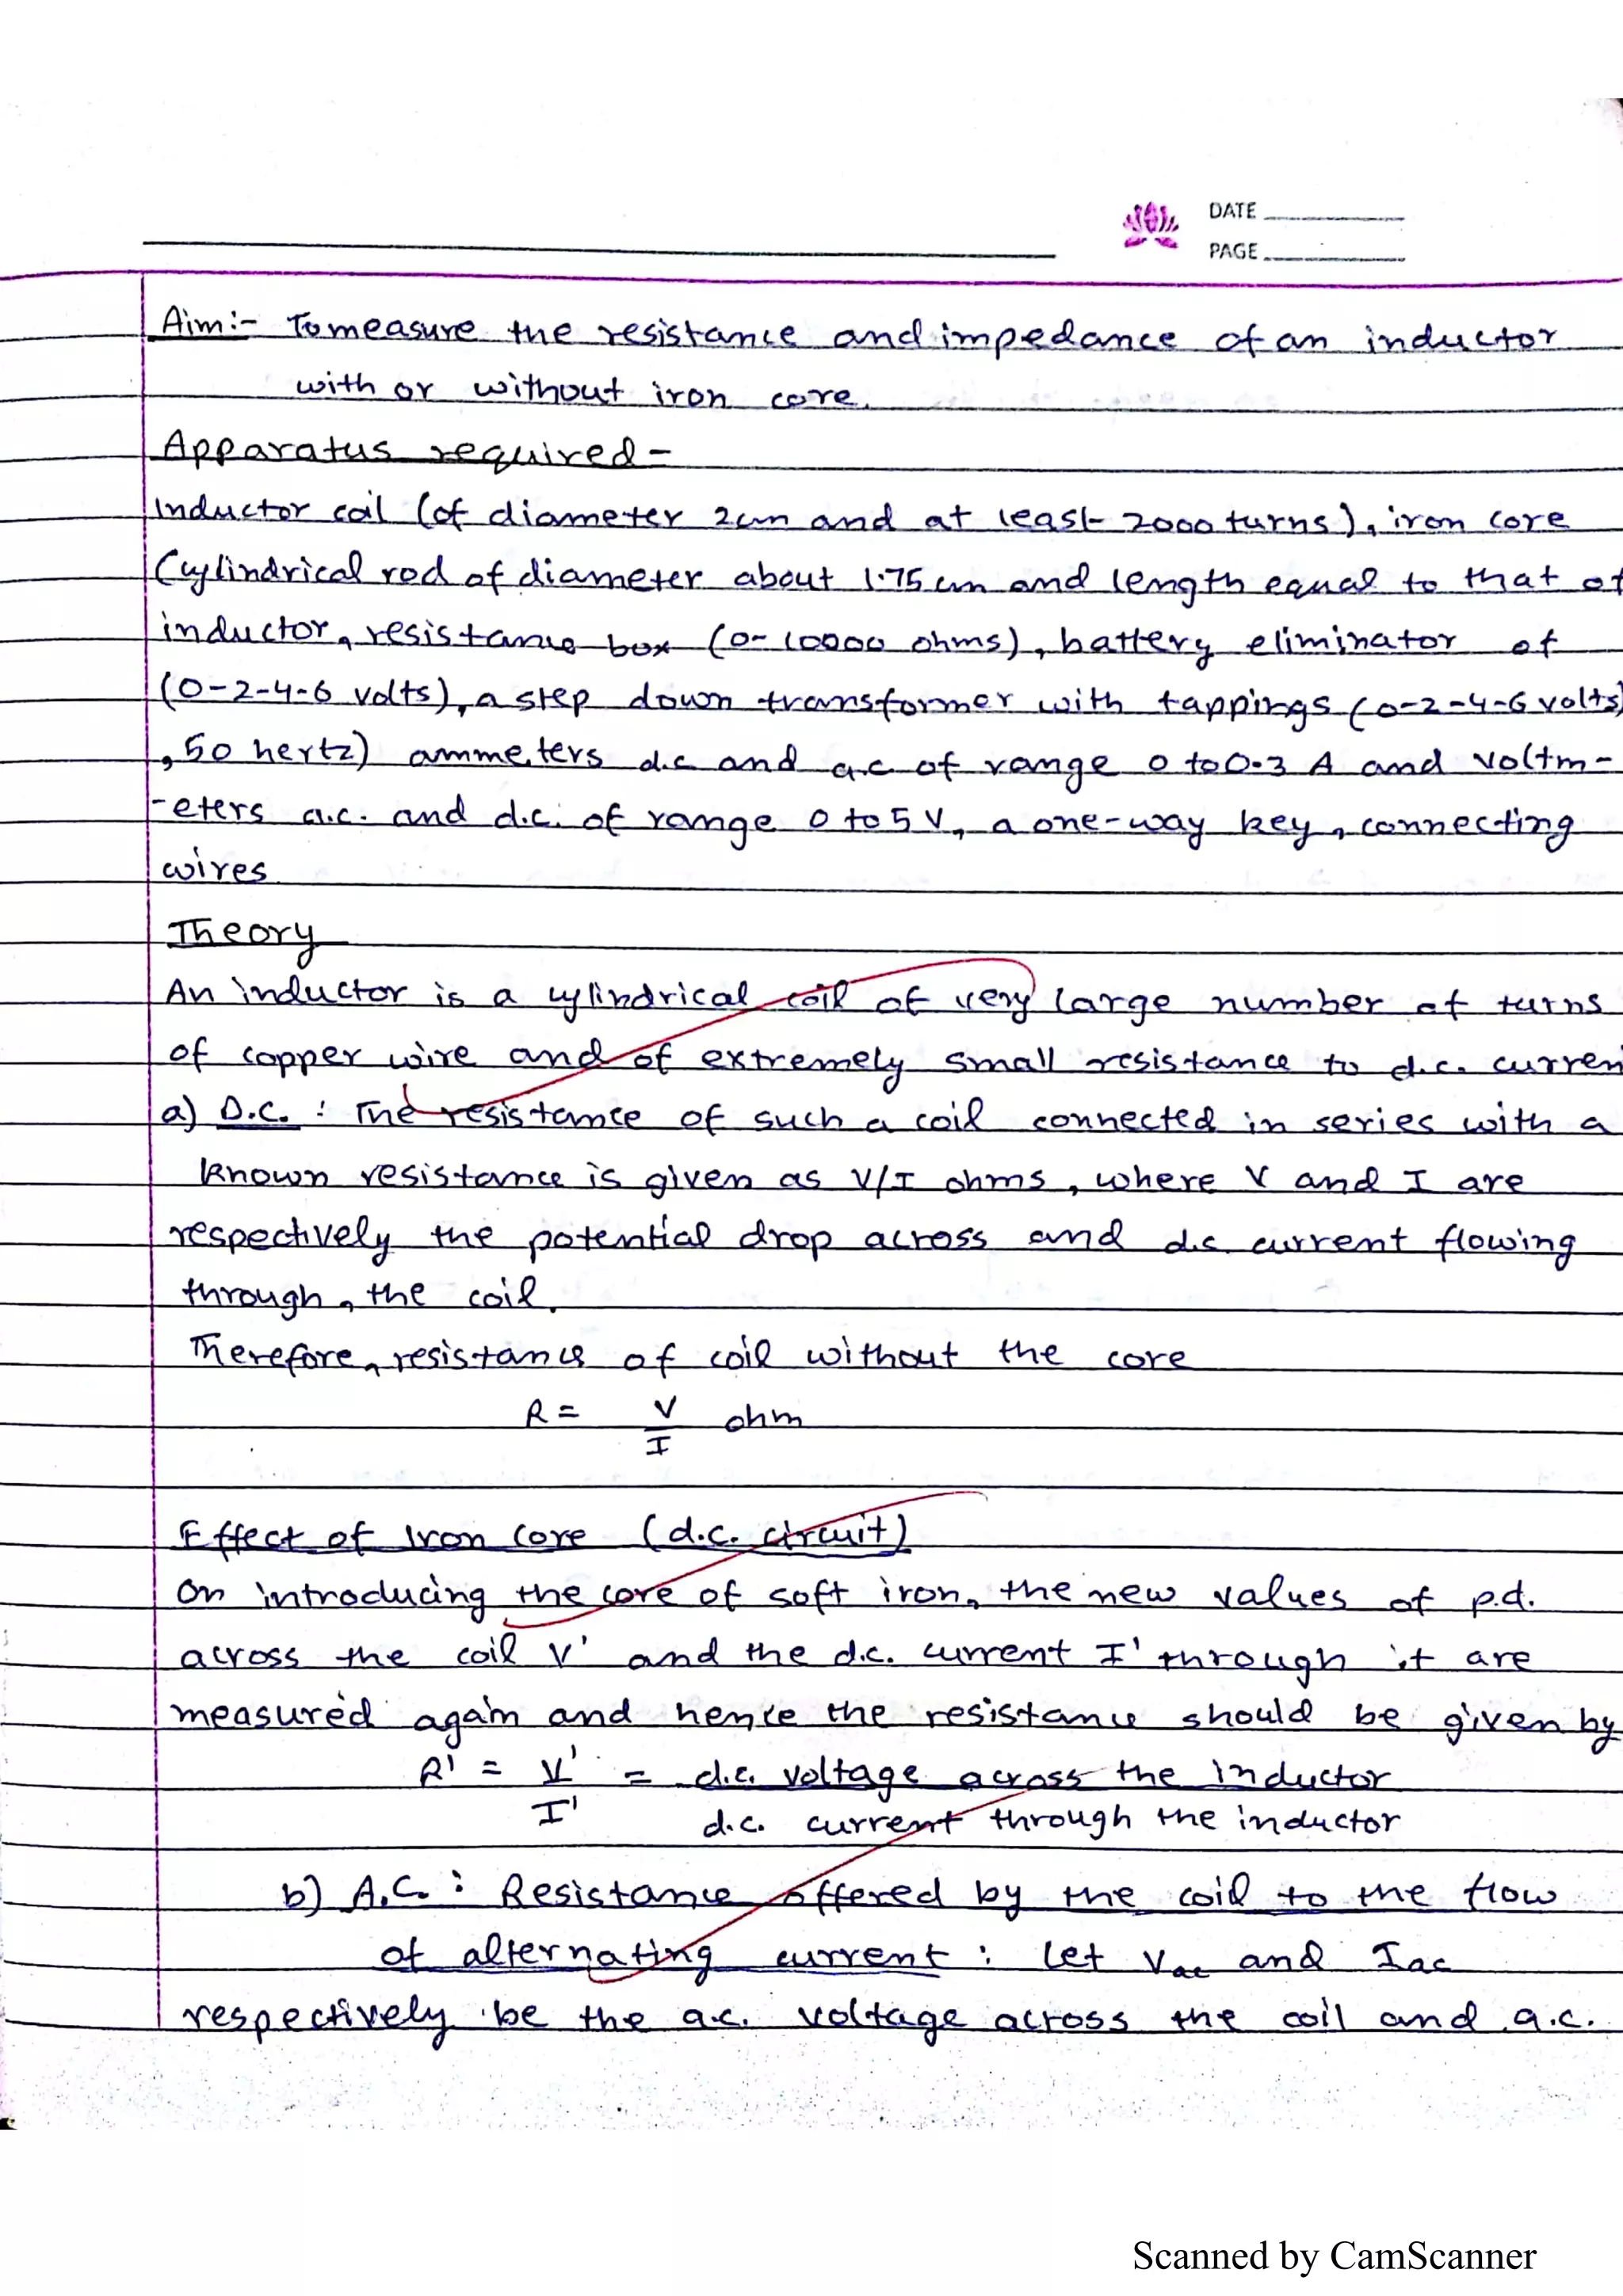 DATE
PAGE
Aim:- To measure the resistance and impedance of an inductor
with or without iron core.
Apparatus required -
Inductor coil (of diameter 2cm and at least 2000 turns), iron core
(cylindrical rod of diameter about 1.75 cm and length equal to that of
inductor, resistance box (0-10000 ohms), battery eliminator of
(0-2-4-6 volts), a step down transformer with tappings (0-2-4-6 volts)
, 50 hertz) ammeters d.c and a.c of range 0 to 0.3 A and voltm-
-eters a.c. and d.c. of range 0 to 5 V, a one-way key, connecting
wires.
Theory
An inductor is a cylindrical coil of very large number of turns
of copper wire and of extremely small resistance to d.c. curren
a) D.C. : The resistance of such a coil connected in series with a
known resistance is given as V/I ohms, where V and I are
respectively the potential drop across and d.c. current flowing
through, the coil.
Therefore, resistance of coil without the core
R = V/I ohm
Effect of Iron Core (d.c. circuit)
On introducing the core of soft iron, the new values of p.d.
across the coil V' and the d.c. current I' through it are
measured again and hence the resistance should be given by
R' = V' = d.c. voltage across the inductor
I' d.c. current through the inductor
b) A.C. : Resistance offered by the coil to the flow
of alternating current : Let Vac and Iac
respectively be the a.c. voltage across the coil and a.c.
Scanned by CamScanner